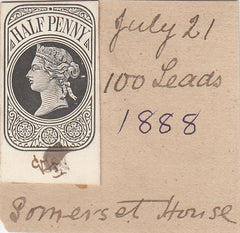 HALF PENNY
July 21
100 Leads
1888
Somerset House